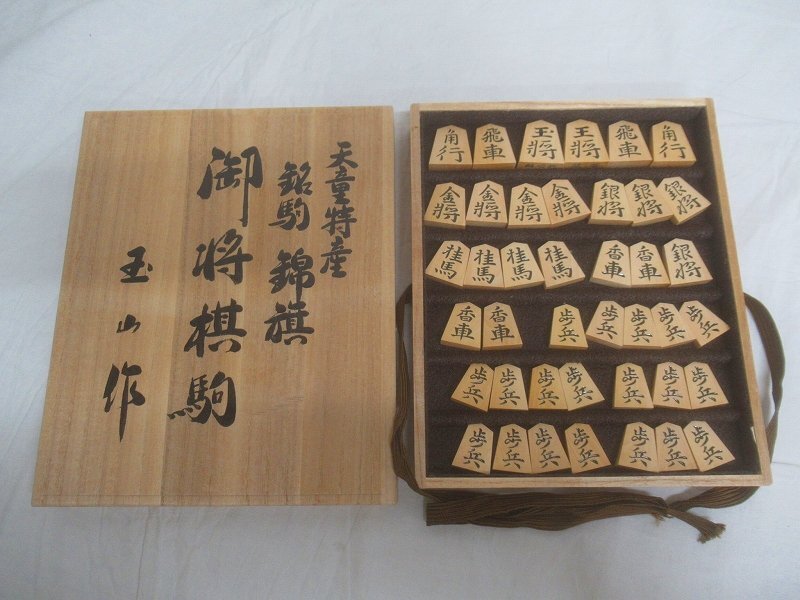 天童特産
銘駒 錦旗
御将棋駒
玉山作
角行 飛車 玉将 王将 飛車 角行
金将 金将 金将 金将 銀将 銀将 銀将
桂馬 桂馬 桂馬 桂馬 香車 香車 銀将
香車 香車 歩兵 歩兵 歩兵 歩兵 歩兵
歩兵 歩兵 歩兵 歩兵 歩兵 歩兵 歩兵
歩兵 歩兵 歩兵 歩兵 歩兵 歩兵 歩兵